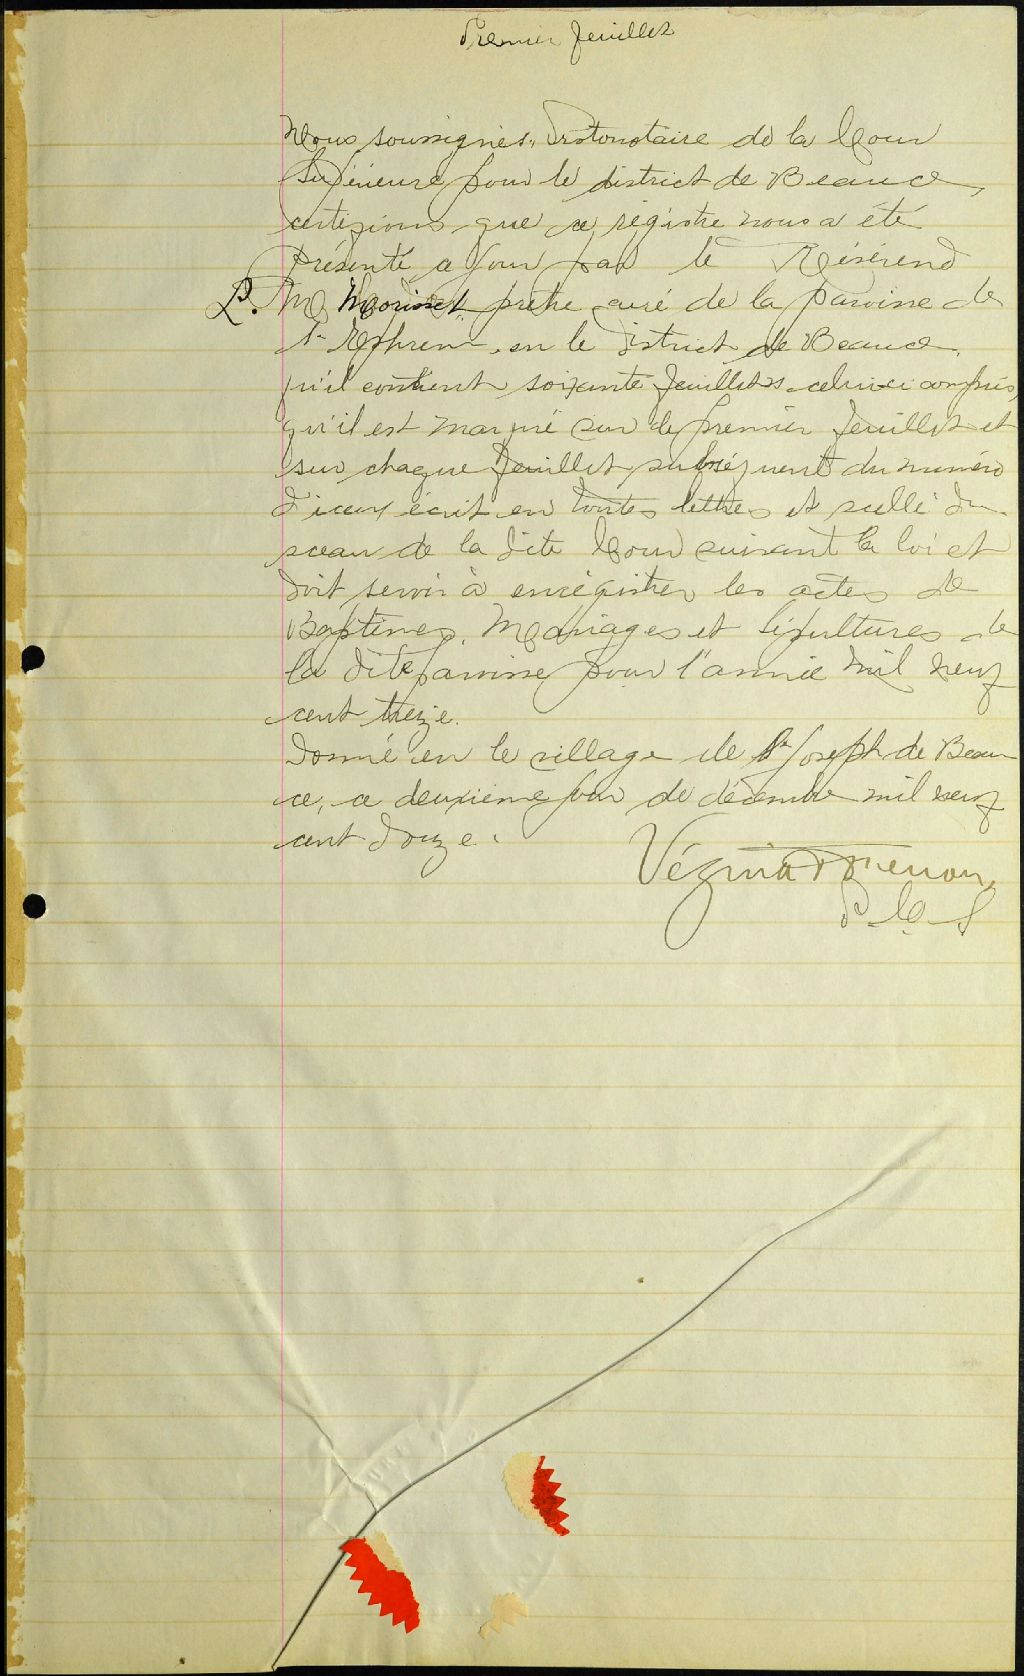 Premier feuillet
Nous soussignés, Protonotaire de la Cour
Supérieure pour le district de Beauce,
certifions que ce régistre nous a été
présenté ce jour par le Révérend
L. M. Morisset prêtre curé de la paroisse de
St Ephrem en le District de Beauce,
qu'il contient soixante feuillets celui-ci compris,
qu'il est marqué sur le premier feuillet et
sur chaque feuillet subséquent du numéro
d'iceux écrit en toutes lettres et scellé du
sceau de la dite Cour suivant la loi et
doit servir à enrégistrer les actes de
Baptêmes, Mariages et Sépultures de
la dite paroisse pour l'année mil neuf
cent treize.
Donné en le village de St Joseph de Beau
ce, ce deuxième jour de décembre mil neuf
cent douze.
Vézina
P. C. S